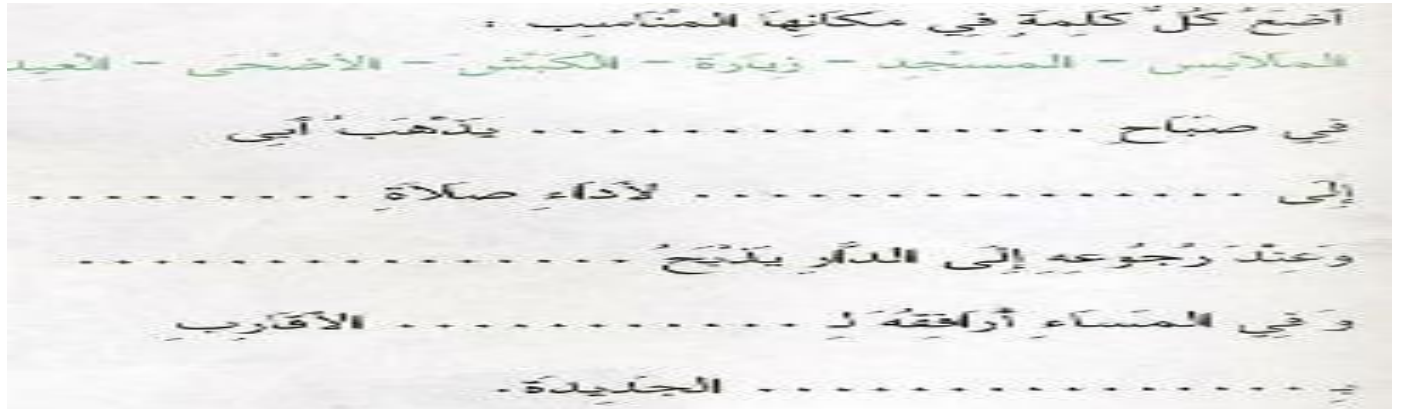 أَضَعُ كُلَّ كَلِمَةٍ فِي مَكَانِهَا الْمُنَاسِبِ :
الْمَلَابِسِ - الْمَسْجِدِ - زِيَارَةِ - الْكَبْشَ - الْأَضْحَى - الْعِيدِ
فِي صَبَاحِ ................ يَذْهَبُ أَبِي
إِلَى ................ لِأَدَاءِ صَلَاةِ ..........
وَعِنْدَ رُجُوعِهِ إِلَى الدَّارِ يَذْبَحُ ................
وَ فِي الْمَسَاءِ أُرَافِقُهُ لِـ ............ الْأَقَارِبِ
بِـ ................ الْجَدِيدَةِ.